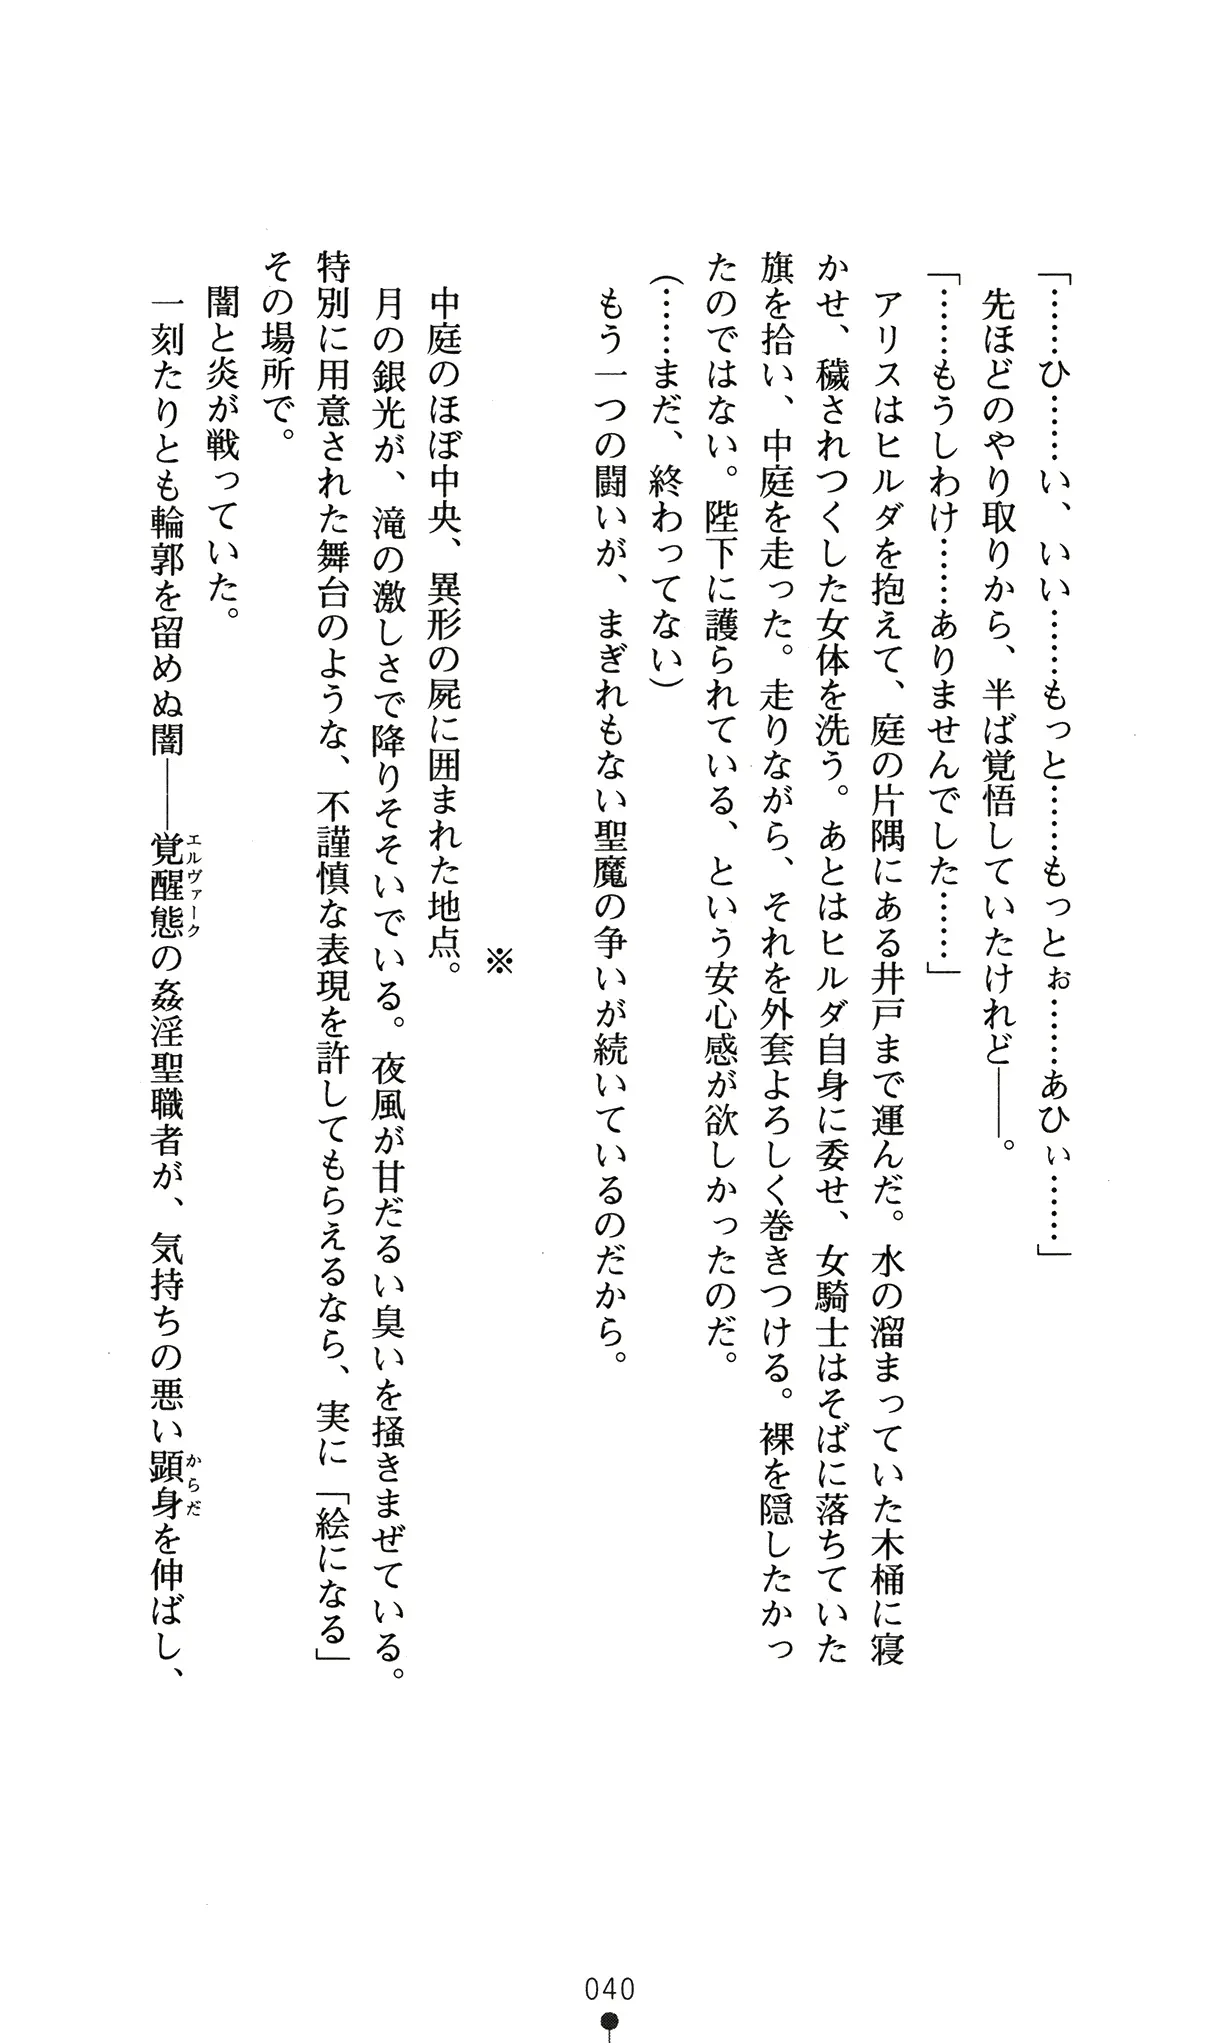 「……ひ……い、いい……もっと……もっとぉ……あひぃ……」
先ほどのやり取りから、半ば覚悟していたけれど――。
「……もうしわけ……ありませんでした……」
アリスはヒルダを抱えて、庭の片隅にある井戸まで運んだ。水の溜まっていた木桶に寝
かせ、穢されつくした女体を洗う。あとはヒルダ自身に委せ、女騎士はそばに落ちていた
旗を拾い、中庭を走った。走りながら、それを外套よろしく巻きつける。裸を隠したかっ
たのではない。陛下に護られている、という安心感が欲しかったのだ。
(……まだ、終わってない)
もう一つの闘いが、まぎれもない聖魔の争いが続いているのだから。
※
中庭のほぼ中央、異形の屍に囲まれた地点。
月の銀光が、滝の激しさで降りそそいでいる。夜風が甘だるい臭いを掻きまぜている。
特別に用意された舞台のような、不謹慎な表現を許してもらえるなら、実に「絵になる」
その場所で。
闇と炎が戦っていた。
一刻たりとも輪郭を留めぬ闇――覚醒態エルヴァークの姦淫聖職者が、気持ちの悪い顕身からだを伸ばし、
040